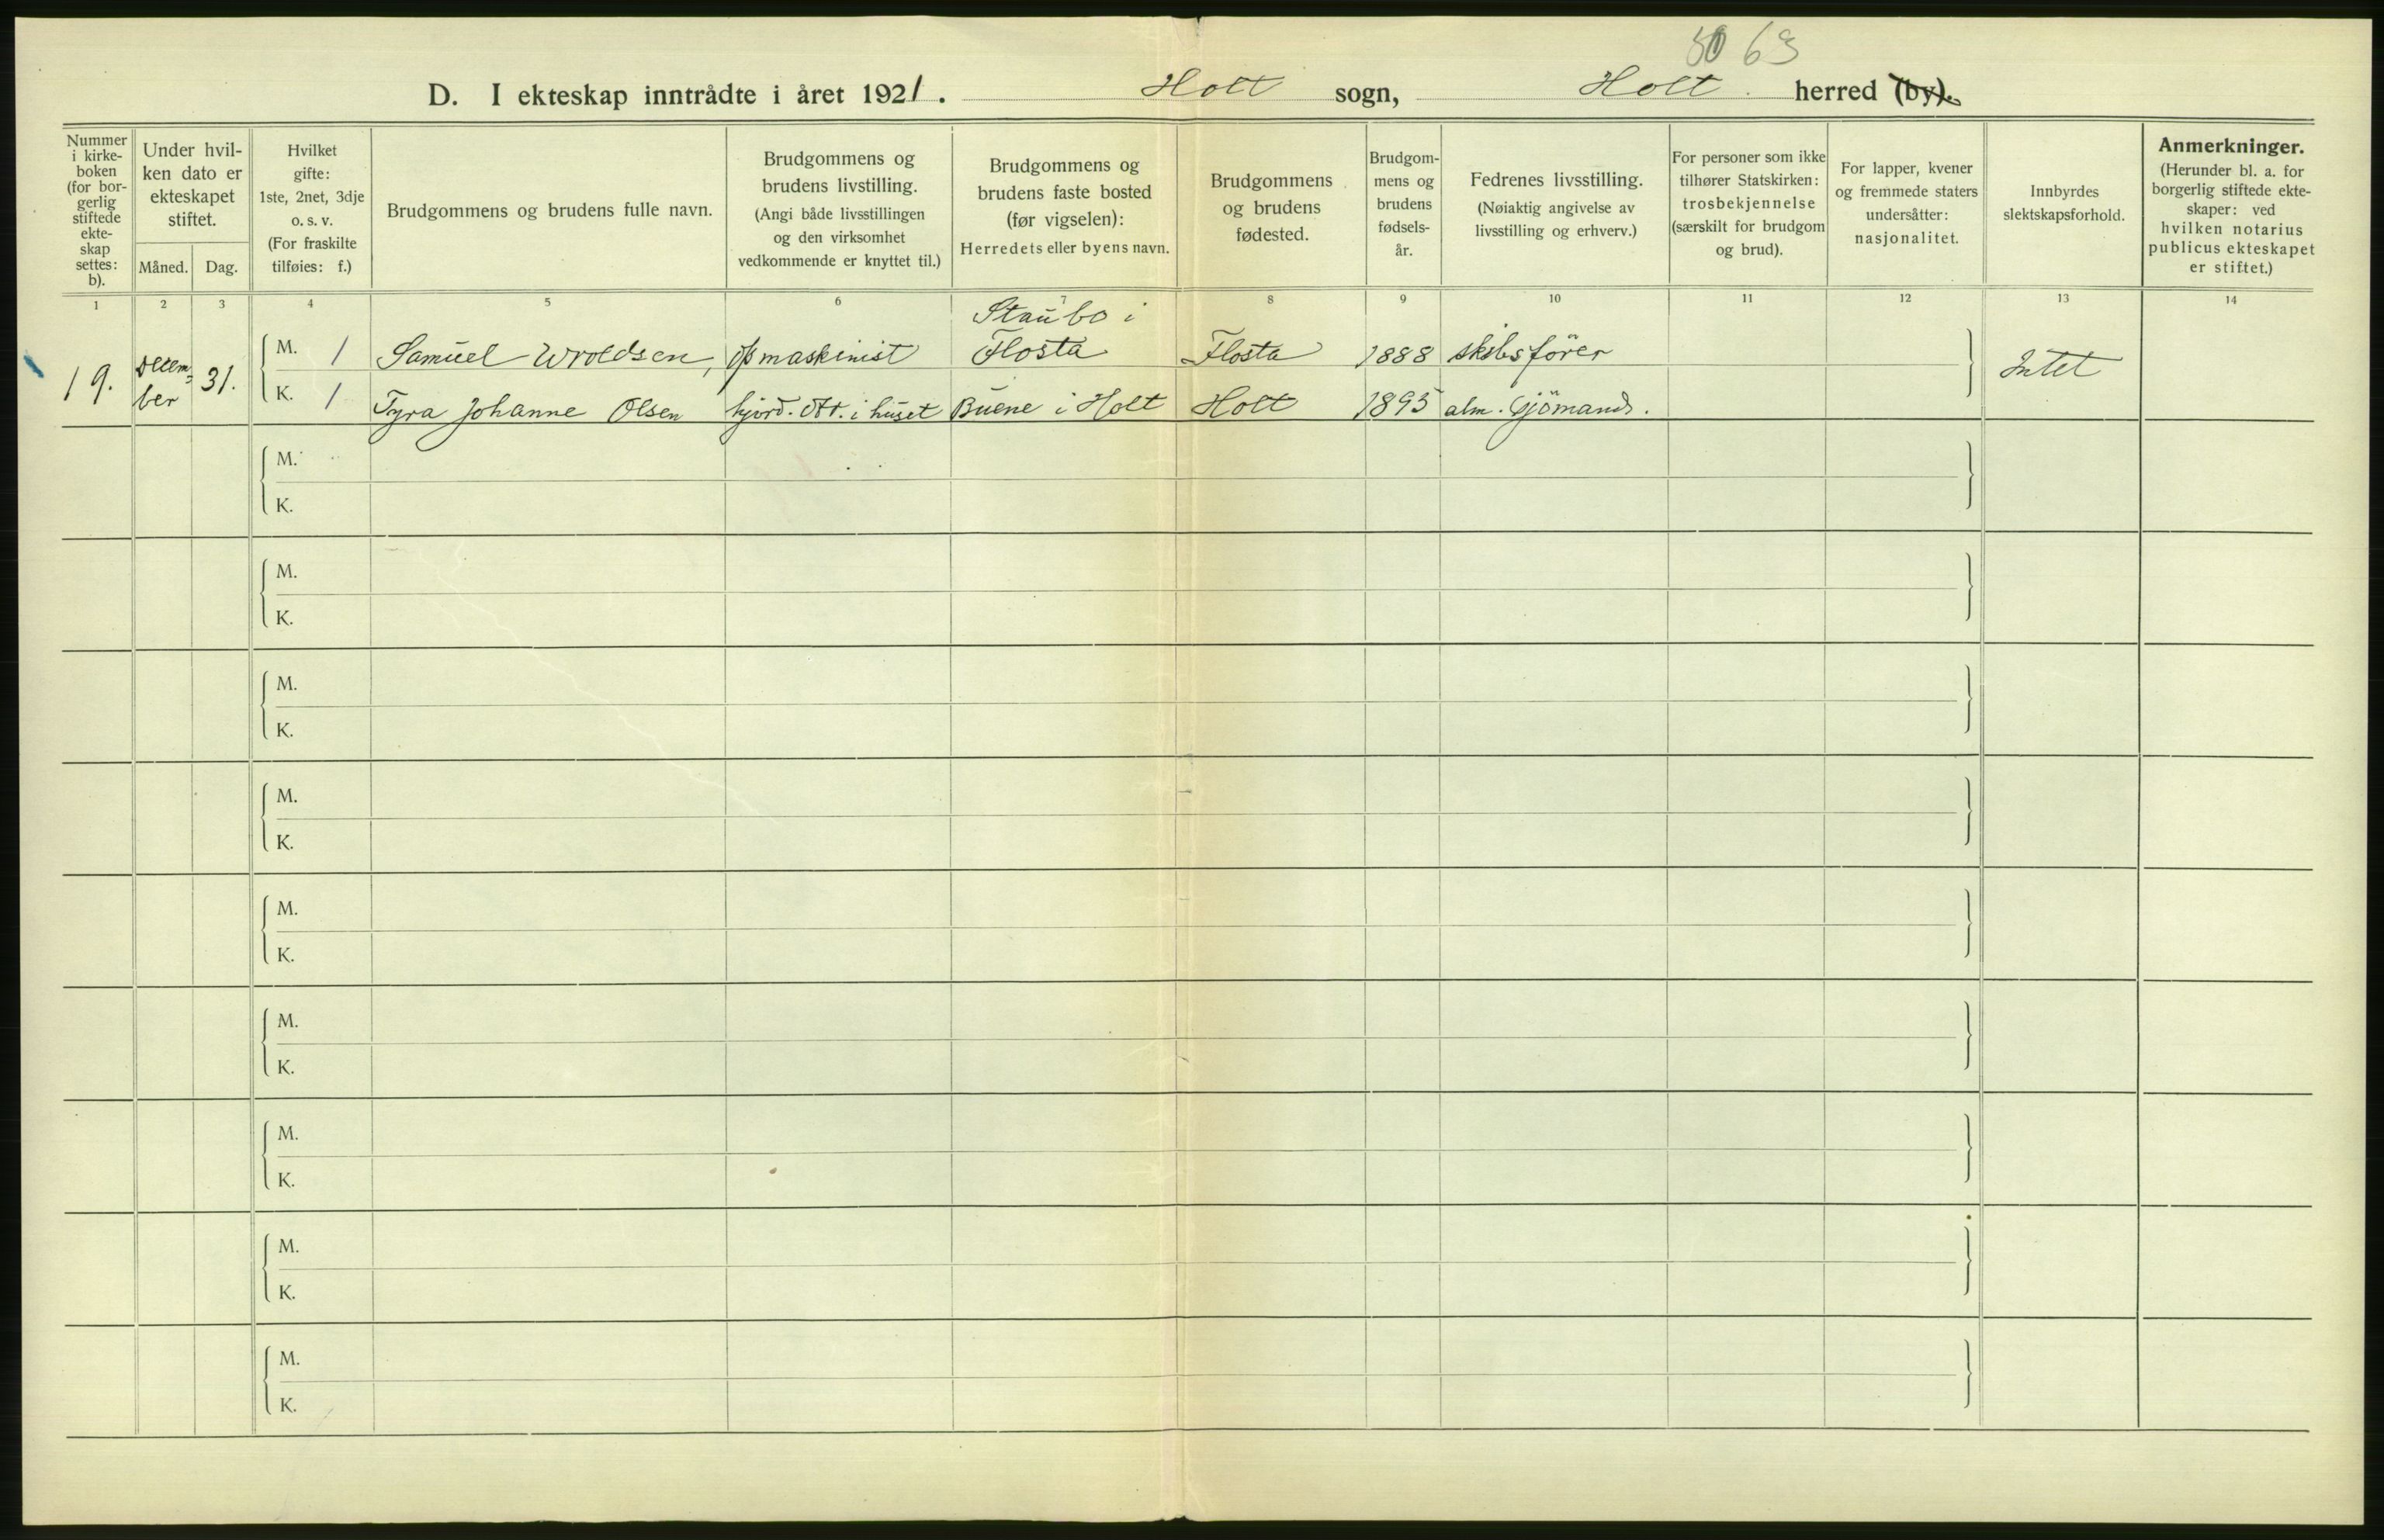 63
D. I ekteskap inntrådte i året 1921. Holt sogn, Holt. herred (by).
Nummer
i kirke-
boken
(for bor-
gerlig
stiftede
ekte-
skap
settes:
b).
Under hvil-
ken dato er
ekteskapet
stiftet.
Måned. Dag.
Hvilket
gifte:
1ste, 2net, 3dje
o. s. v.
(For fraskilte
tilføies: f.)
Brudgommens og brudens fulle navn.
Brudgommens og
brudens livstilling.
(Angi både livsstillingen
og den virksomhet
vedkommende er knyttet til.)
Brudgommens og
brudens faste bosted
(før vigselen):
Herredets eller byens navn.
Brudgommens
og brudens
fødested.
Brudgom-
mens og
brudens
fødsels-
år.
Fedrenes livsstilling.
(Nøiaktig angivelse av
livsstilling og erhverv.)
For personer som ikke
tilhører Statskirken:
trosbekjennelse
(særskilt for brudgom
og brud).
For lapper, kvener
og fremmede staters
undersåtter:
nasjonalitet.
Innbyrdes
slektskapsforhold.
Anmerkninger.
(Herunder bl. a. for
borgerlig stiftede ekte-
skaper: ved
hvilken notarius
publicus ekteskapet
er stiftet.)
1 2 3 4 5 6 7 8 9 10 11 12 13 14
19. Decem-
ber 31.
Staubo i
M. 1 Samuel Wroldsen, maskinist Flosta Flosta 1888 skibsfører Intet
K. 1 Tyra Johanne Olsen hjord. dtt. i huset Buene i Holt Holt 1895 alm. sjömand.
M.
K.
M.
K.
M.
K.
M.
K.
M.
K.
M.
K.
M.
K.
M.
K.
M.
K.